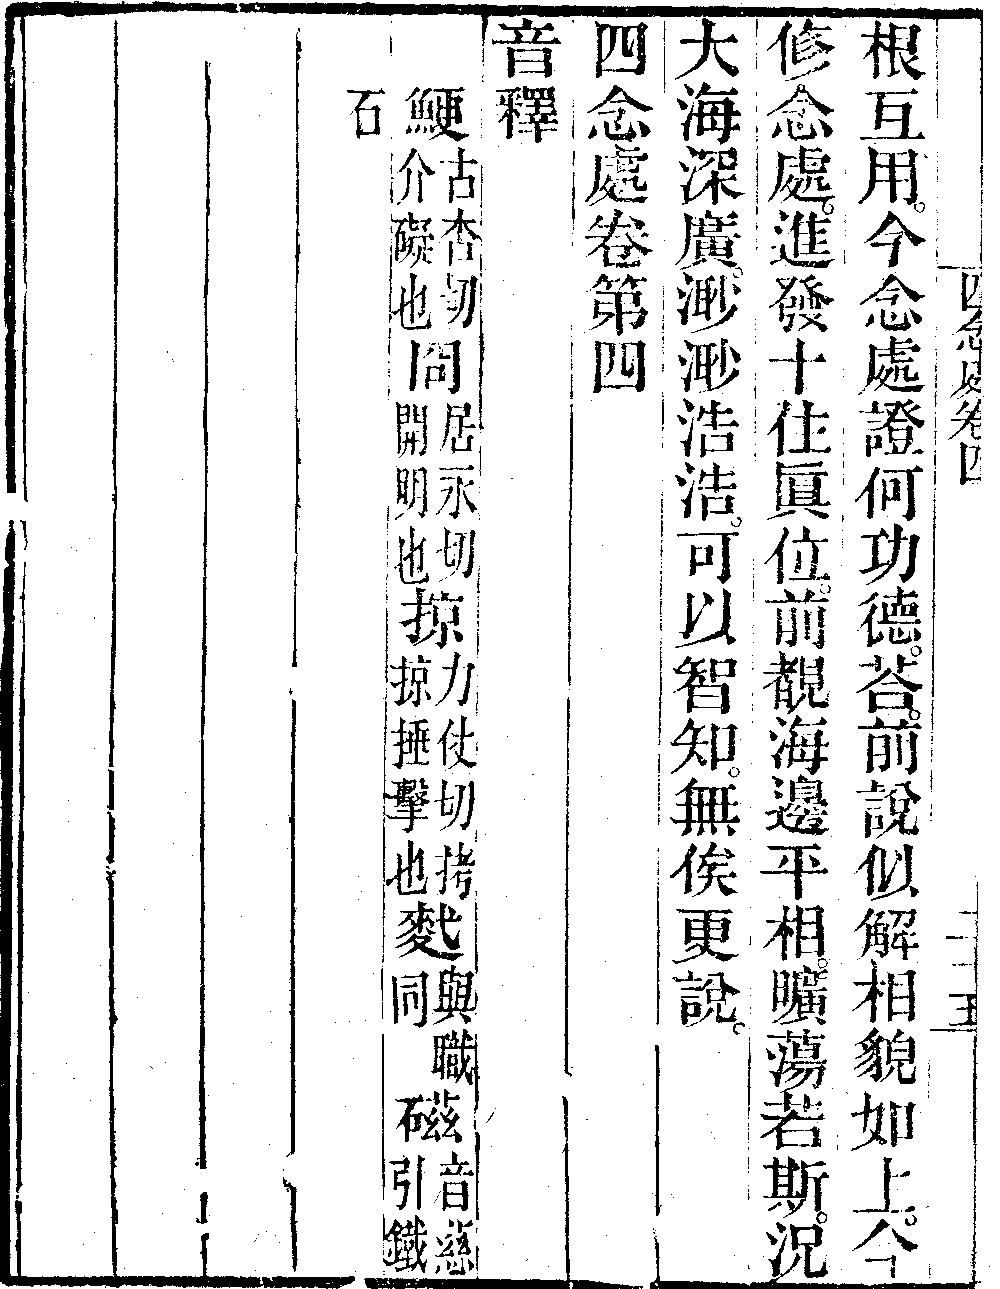 四念處卷四
根互用。今念處證何功德。荅。前說似解相貌如上。今
修念處。進發十住眞位。前覩海邊平相。曠蕩若斯。況
大海深廣。渺渺浩浩。可以智知。無俟更說。
四念處卷第四
音釋
鯁古杏切介礙也冏居永切開明也掠力仗切拷掠捶擊也與職同磁音慈引鐵
石